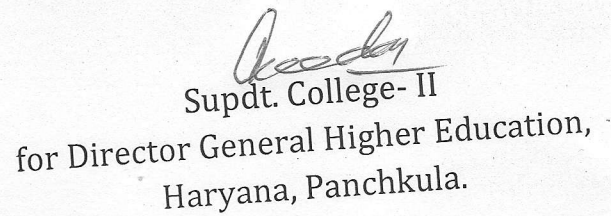 Supdt. College- II
for Director General Higher Education,
Haryana, Panchkula.